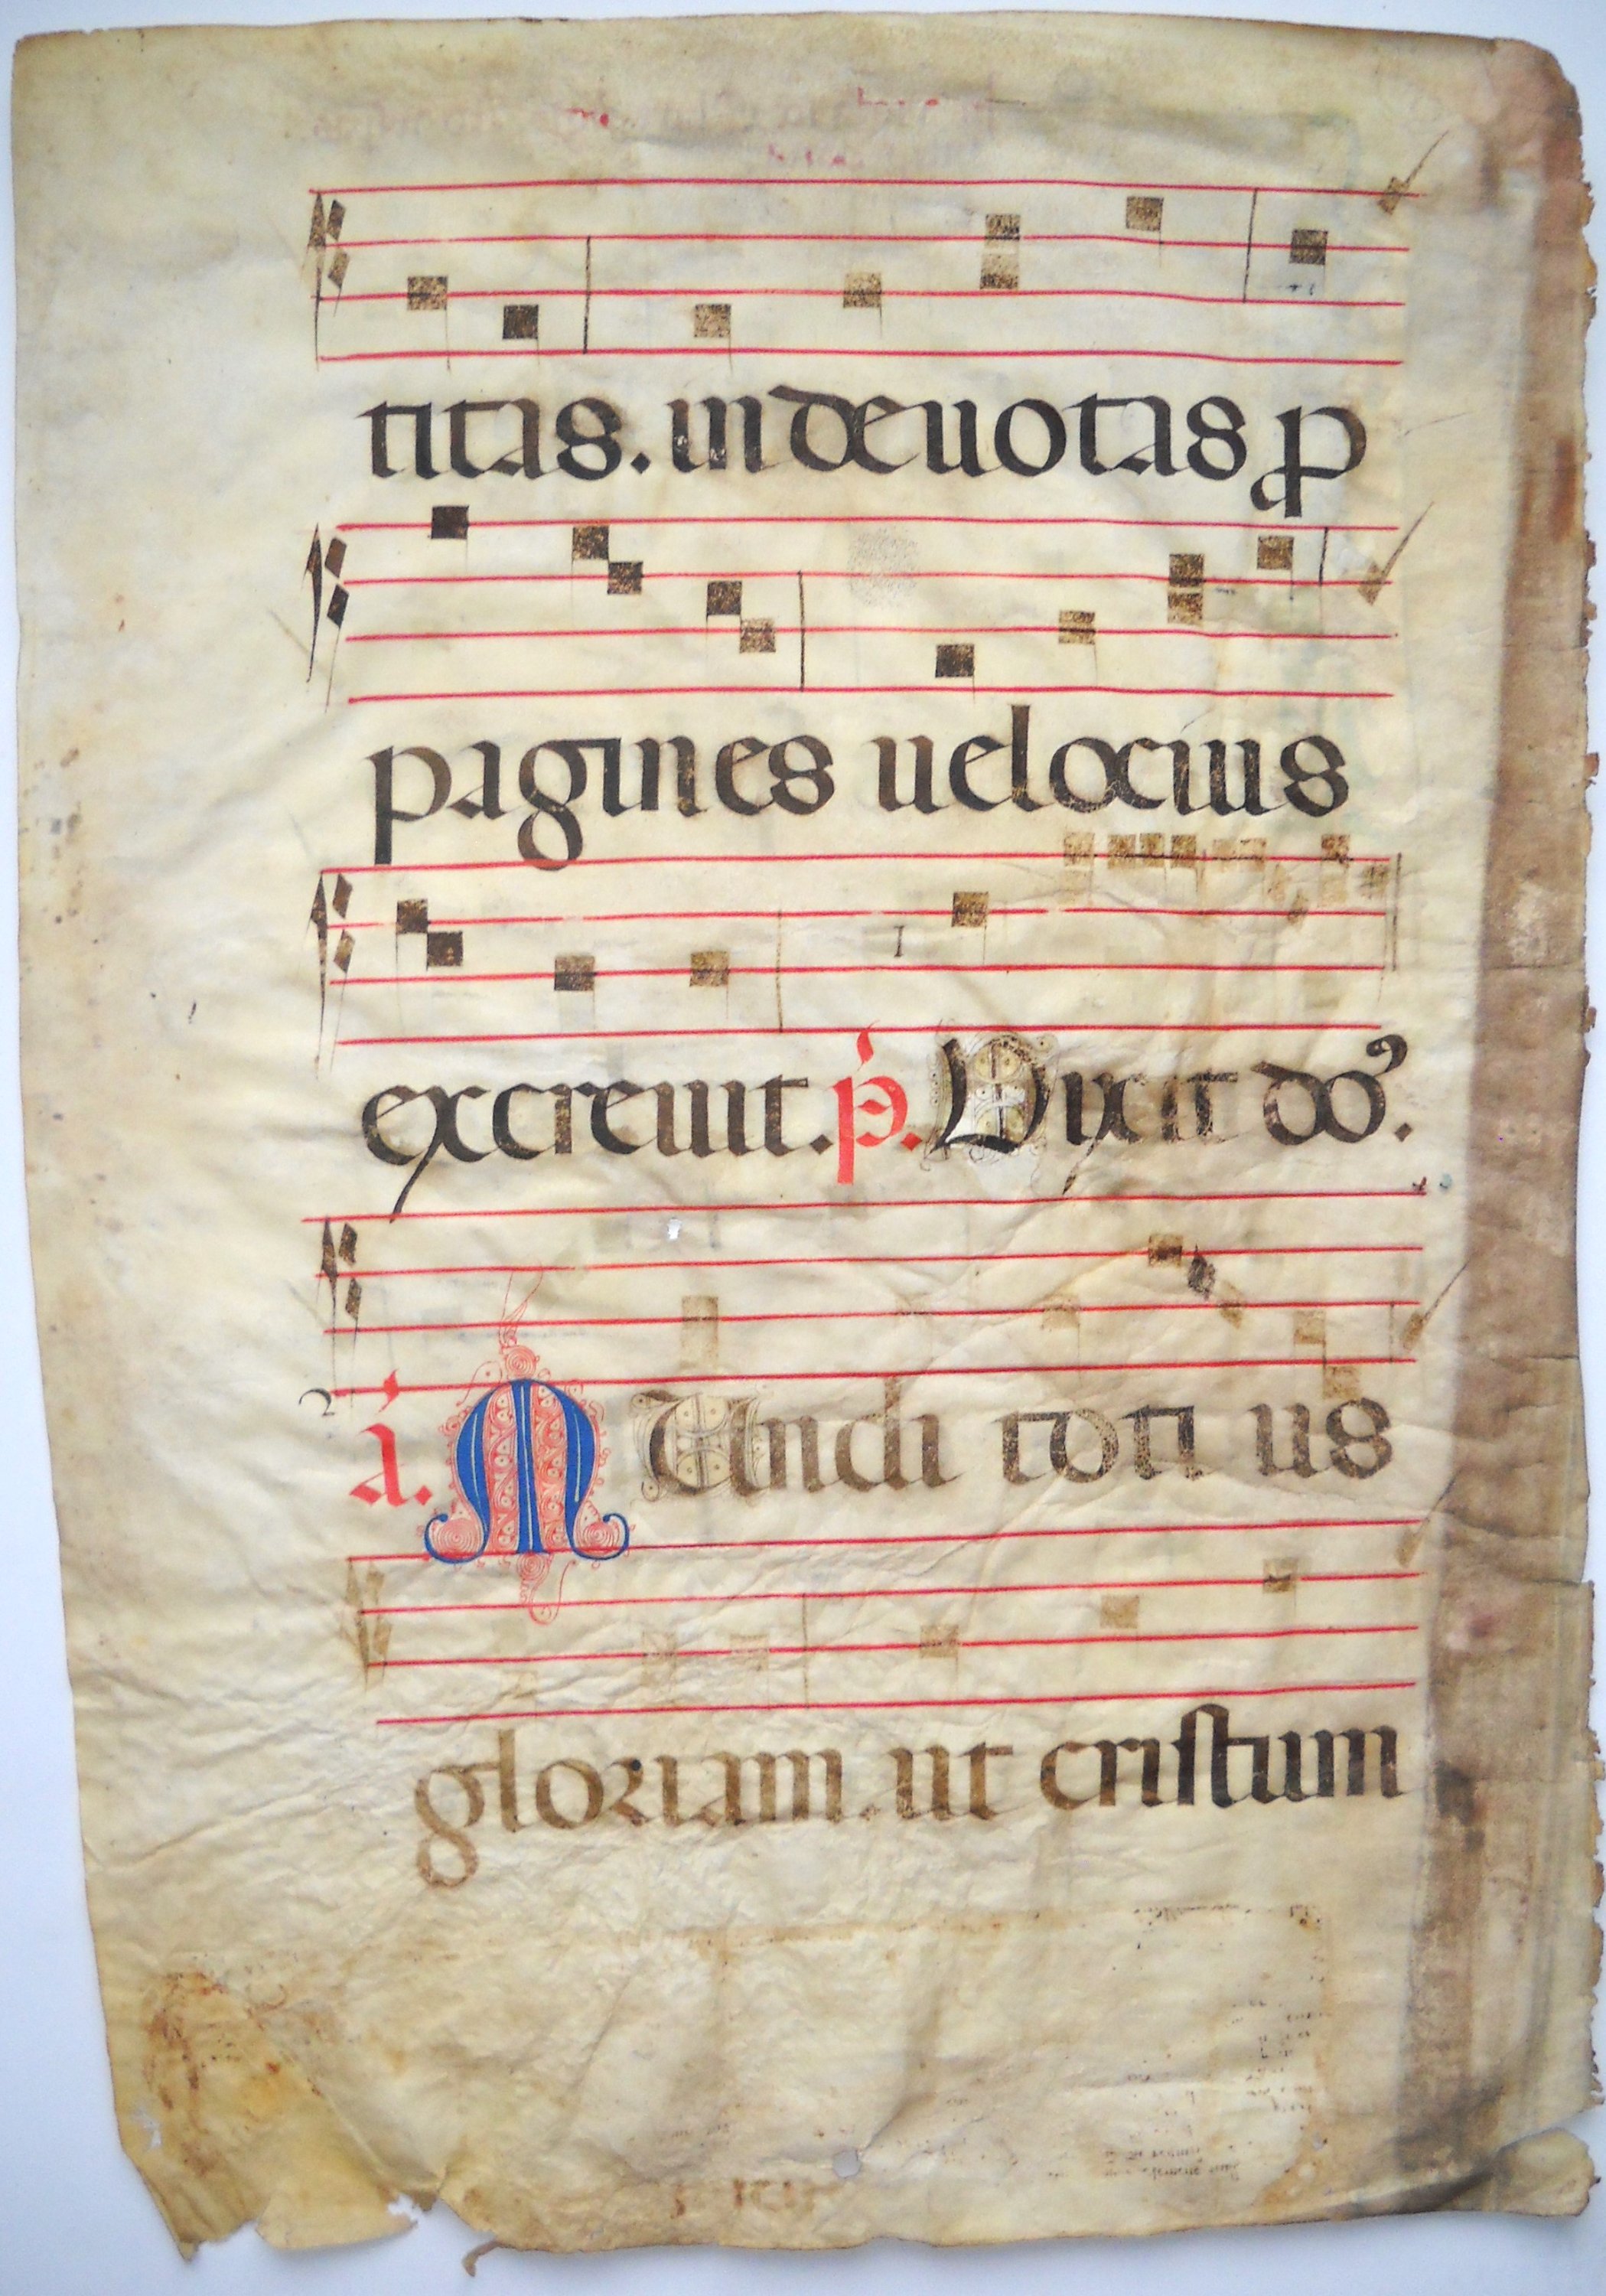 titas. in deuotas ꝓ
pagines uelocius
excreuit. p̃. Dixit do᷒.
a. M Undi toti us
gloriam. ut cristum